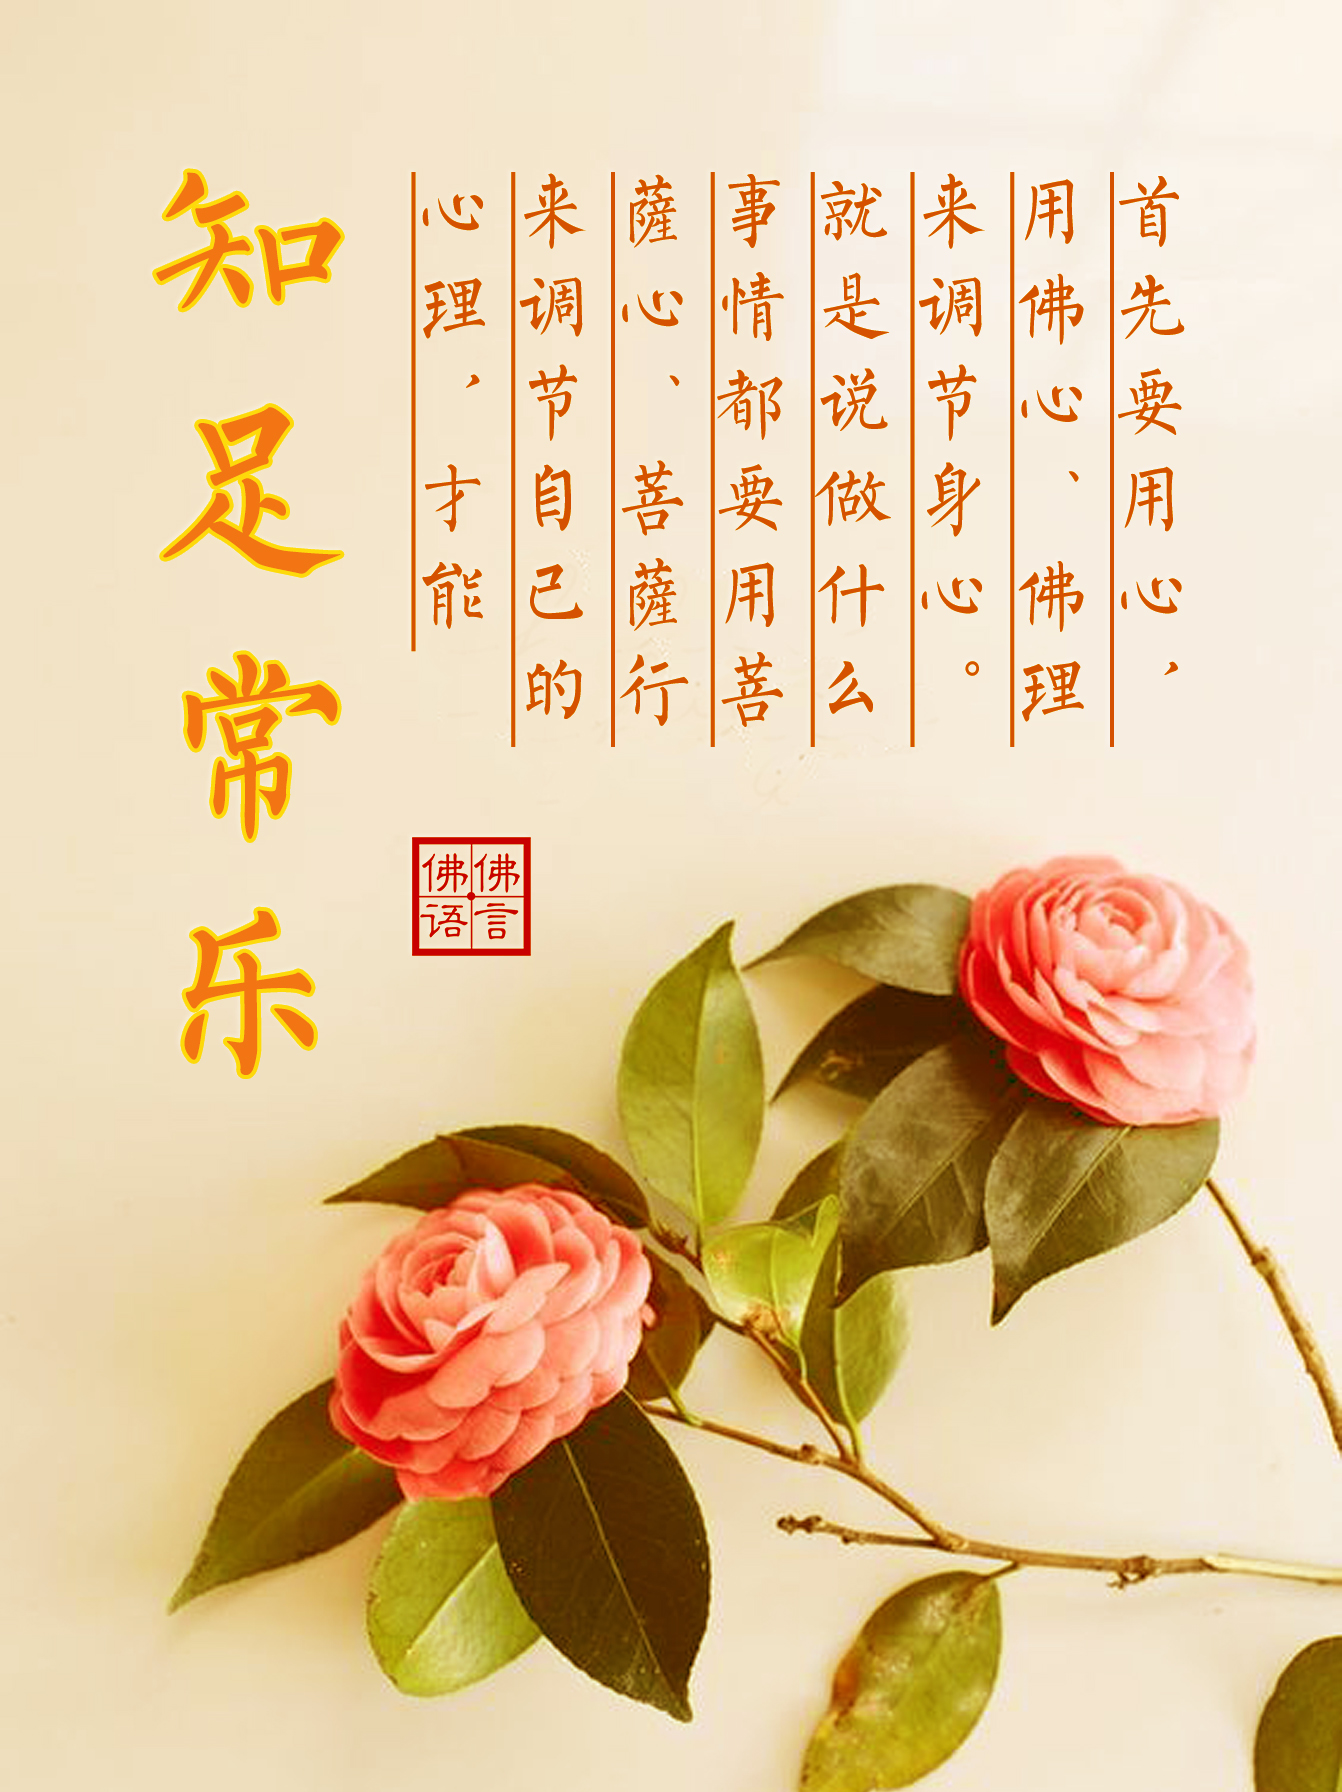 首先要用心，
用佛心、佛理
来调节身心。
就是说做什么
事情都要用菩
薩心、菩薩行
来调节自己的
心理，才能
知足常乐
佛言
佛语